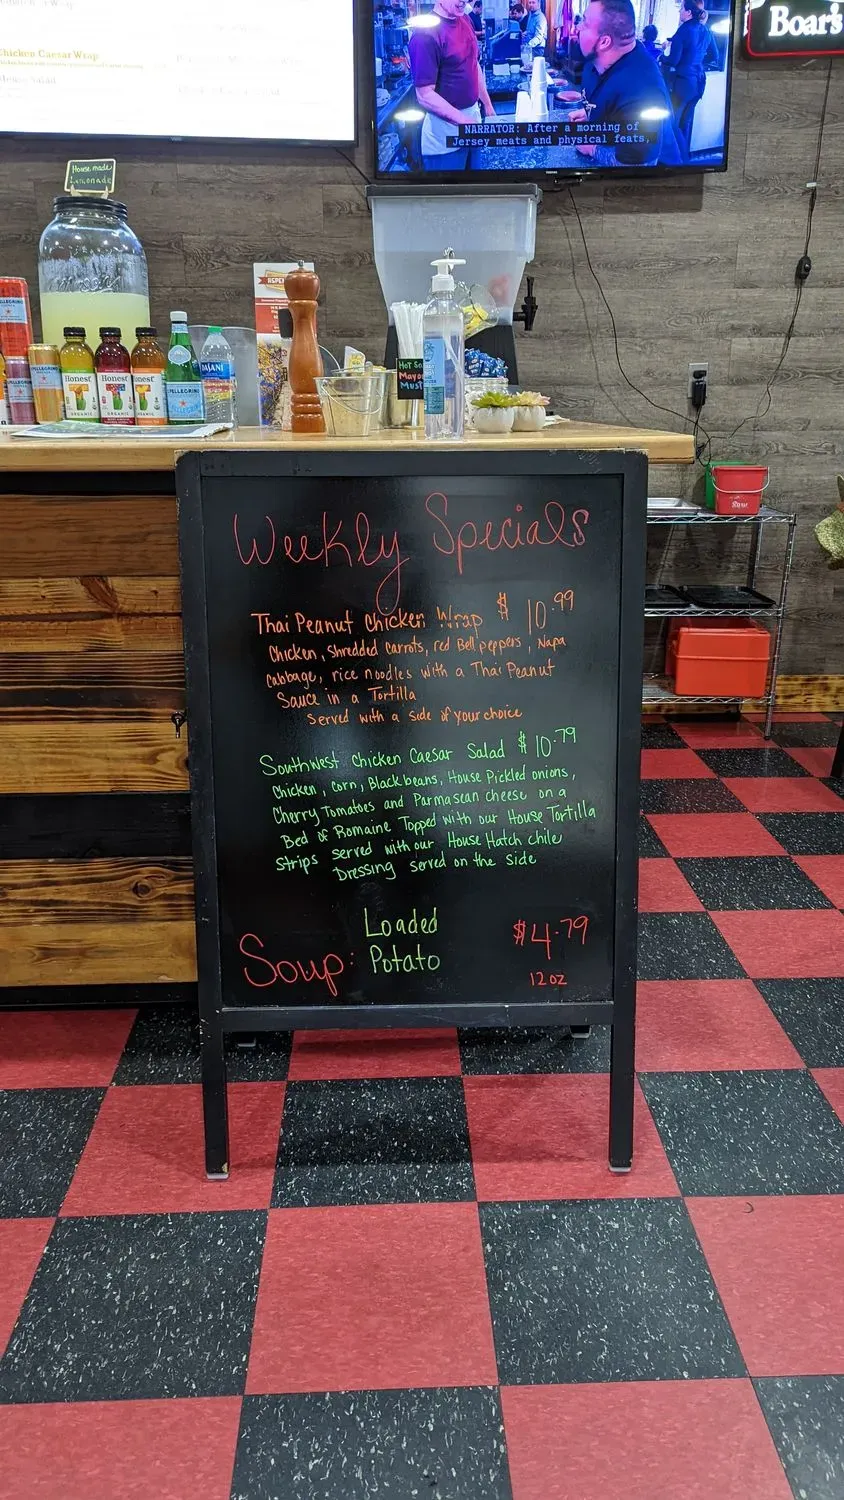 Chicken Caesar Wrap
NARRATOR: After a morning of
Jersey meats and physical feats,
Boar's
House made
Lemonade
Honest
Honest
Honest
ORGANIC
ORGANIC
ORGANIC
S.PELLEGRINO
DASANI
Weekly Specials
Thai Peanut Chicken Wrap $10.99
Chicken, Shredded carrots, red Bell peppers, Napa
cabbage, rice noodles with a Thai Peanut
Sauce in a Tortilla
Served with a side of your choice
Southwest Chicken Caesar Salad $10.79
Chicken, Corn, Black beans, House Pickled onions,
Cherry Tomatoes and Parmasean cheese on a
Bed of Romaine Topped with our House Tortilla
Strips served with our House Hatch chile
Dressing served on the side
Soup: Loaded Potato $4.79
12oz